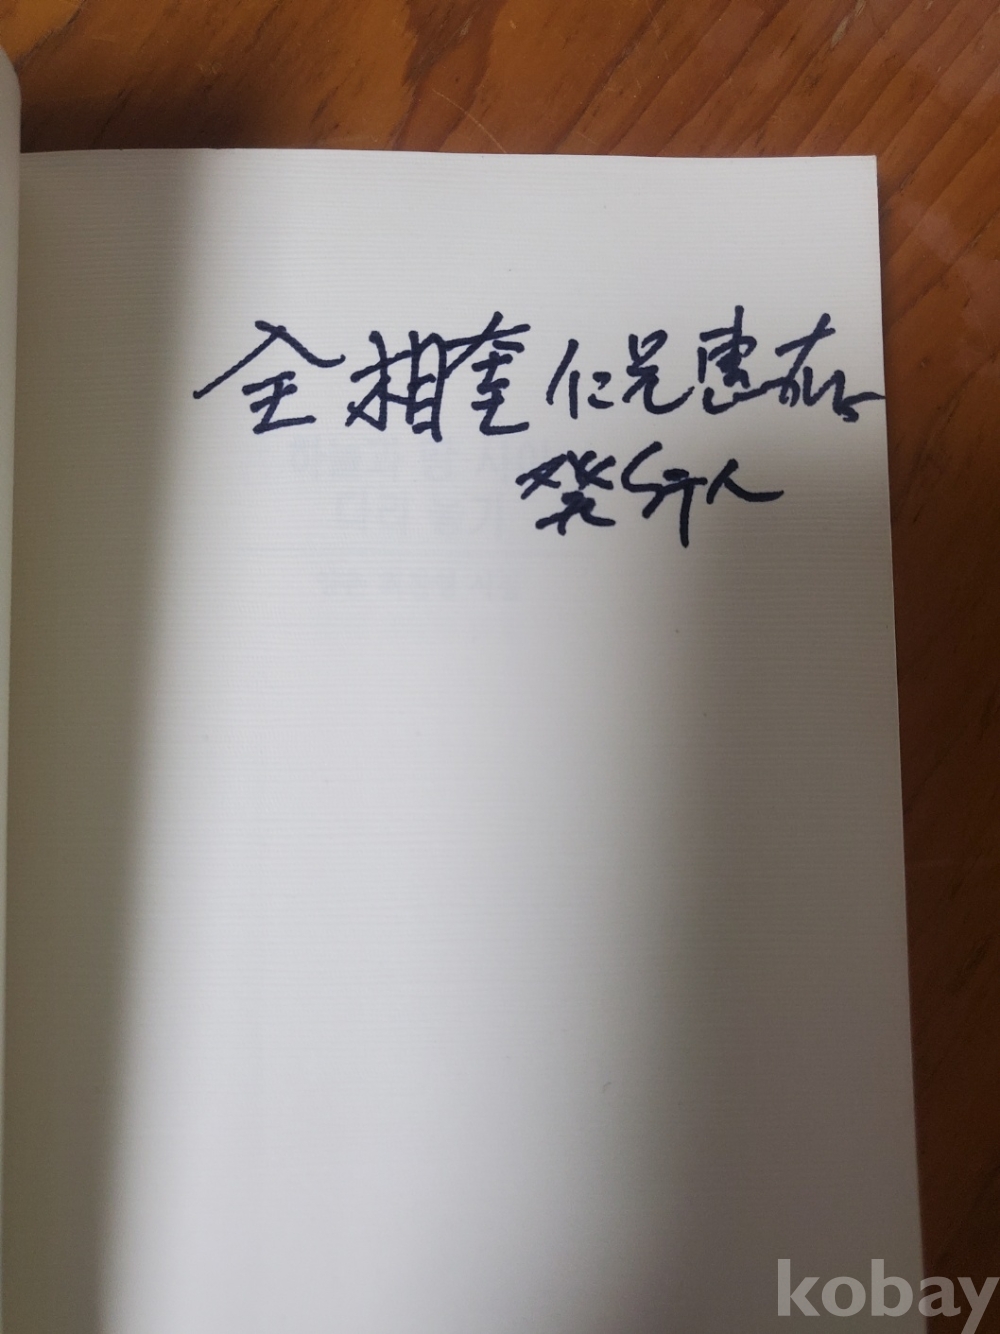 全相奎 仁兄 惠存
發行人
kobay